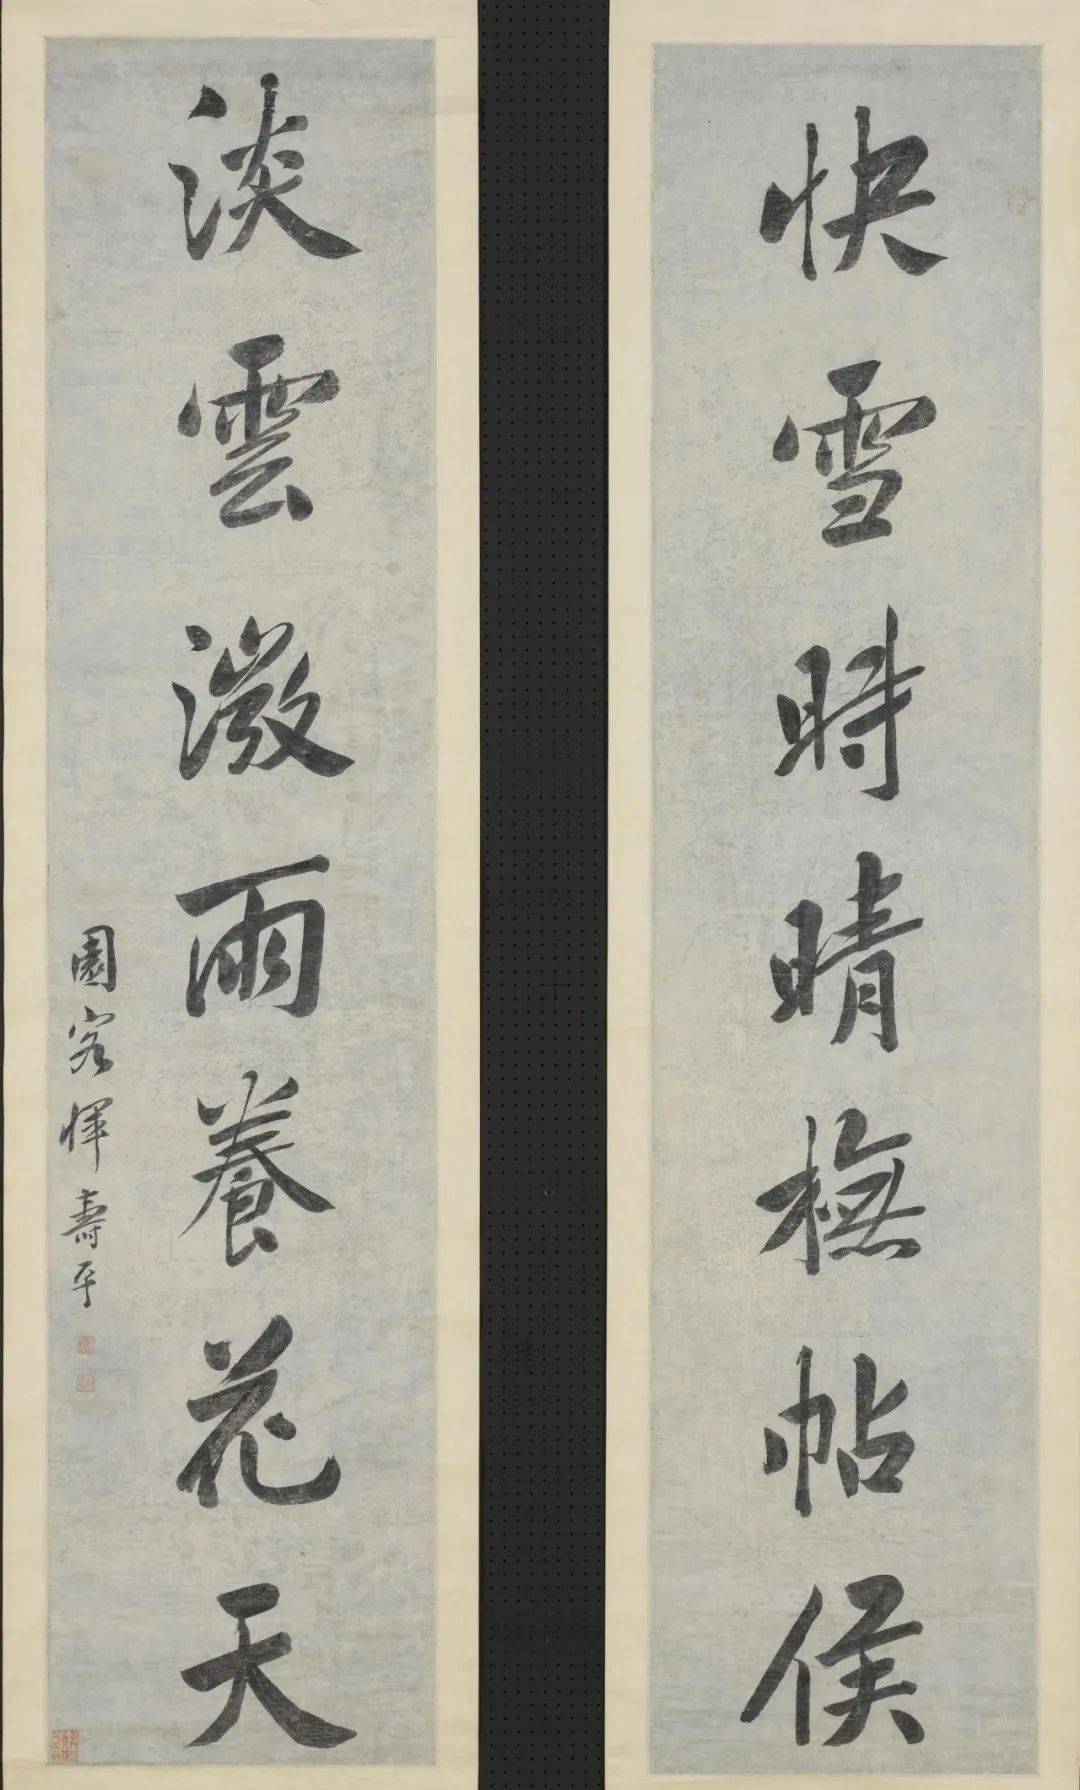 快雪時晴橅帖侯
淡雲溦雨養花天
園客惲壽平